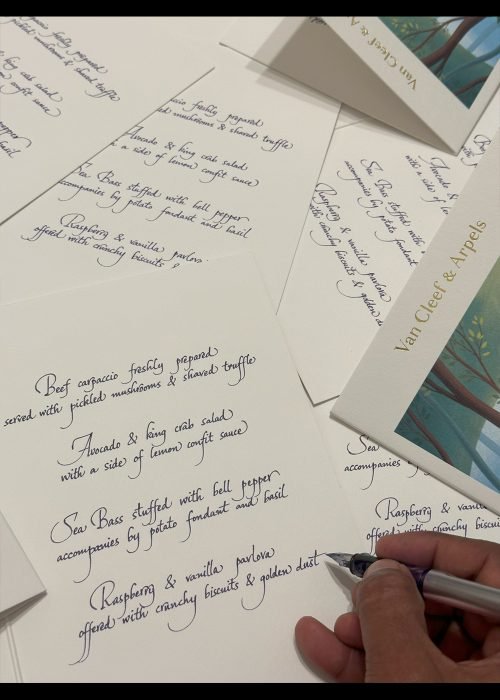 freshly prepared
pickled mushrooms & shaved truffle
king crab salad
confit sauce
pepper
basil
freshly prepared
mushrooms & shared truffle
Avocado & king crab salad
a side of lemon confit sauce
Sea Bass stuffed with bell pepper
accompanies by potato fondant and basil
Raspberry & vanilla pavlova
offered with crunchy biscuits &
Van Cleef & A
Avocado &
with a side of
Sea Bass stuffed
accompanies by potato fondant
Raspberry & vanilla pavlova
with crunchy biscuits & golden
Van Cleef & Arpels
Beef carpaccio freshly prepared
served with pickled mushrooms & shaved truffle
Avocado & king crab salad
with a side of lemon confit sauce
Sea Bass stuffed with bell pepper
accompanies by potato fondant and basil
Raspberry & vanilla pavlova
offered with crunchy biscuits & golden dust
Sea
accompanies by
Raspberry & vanilla
offered with crunchy biscuits